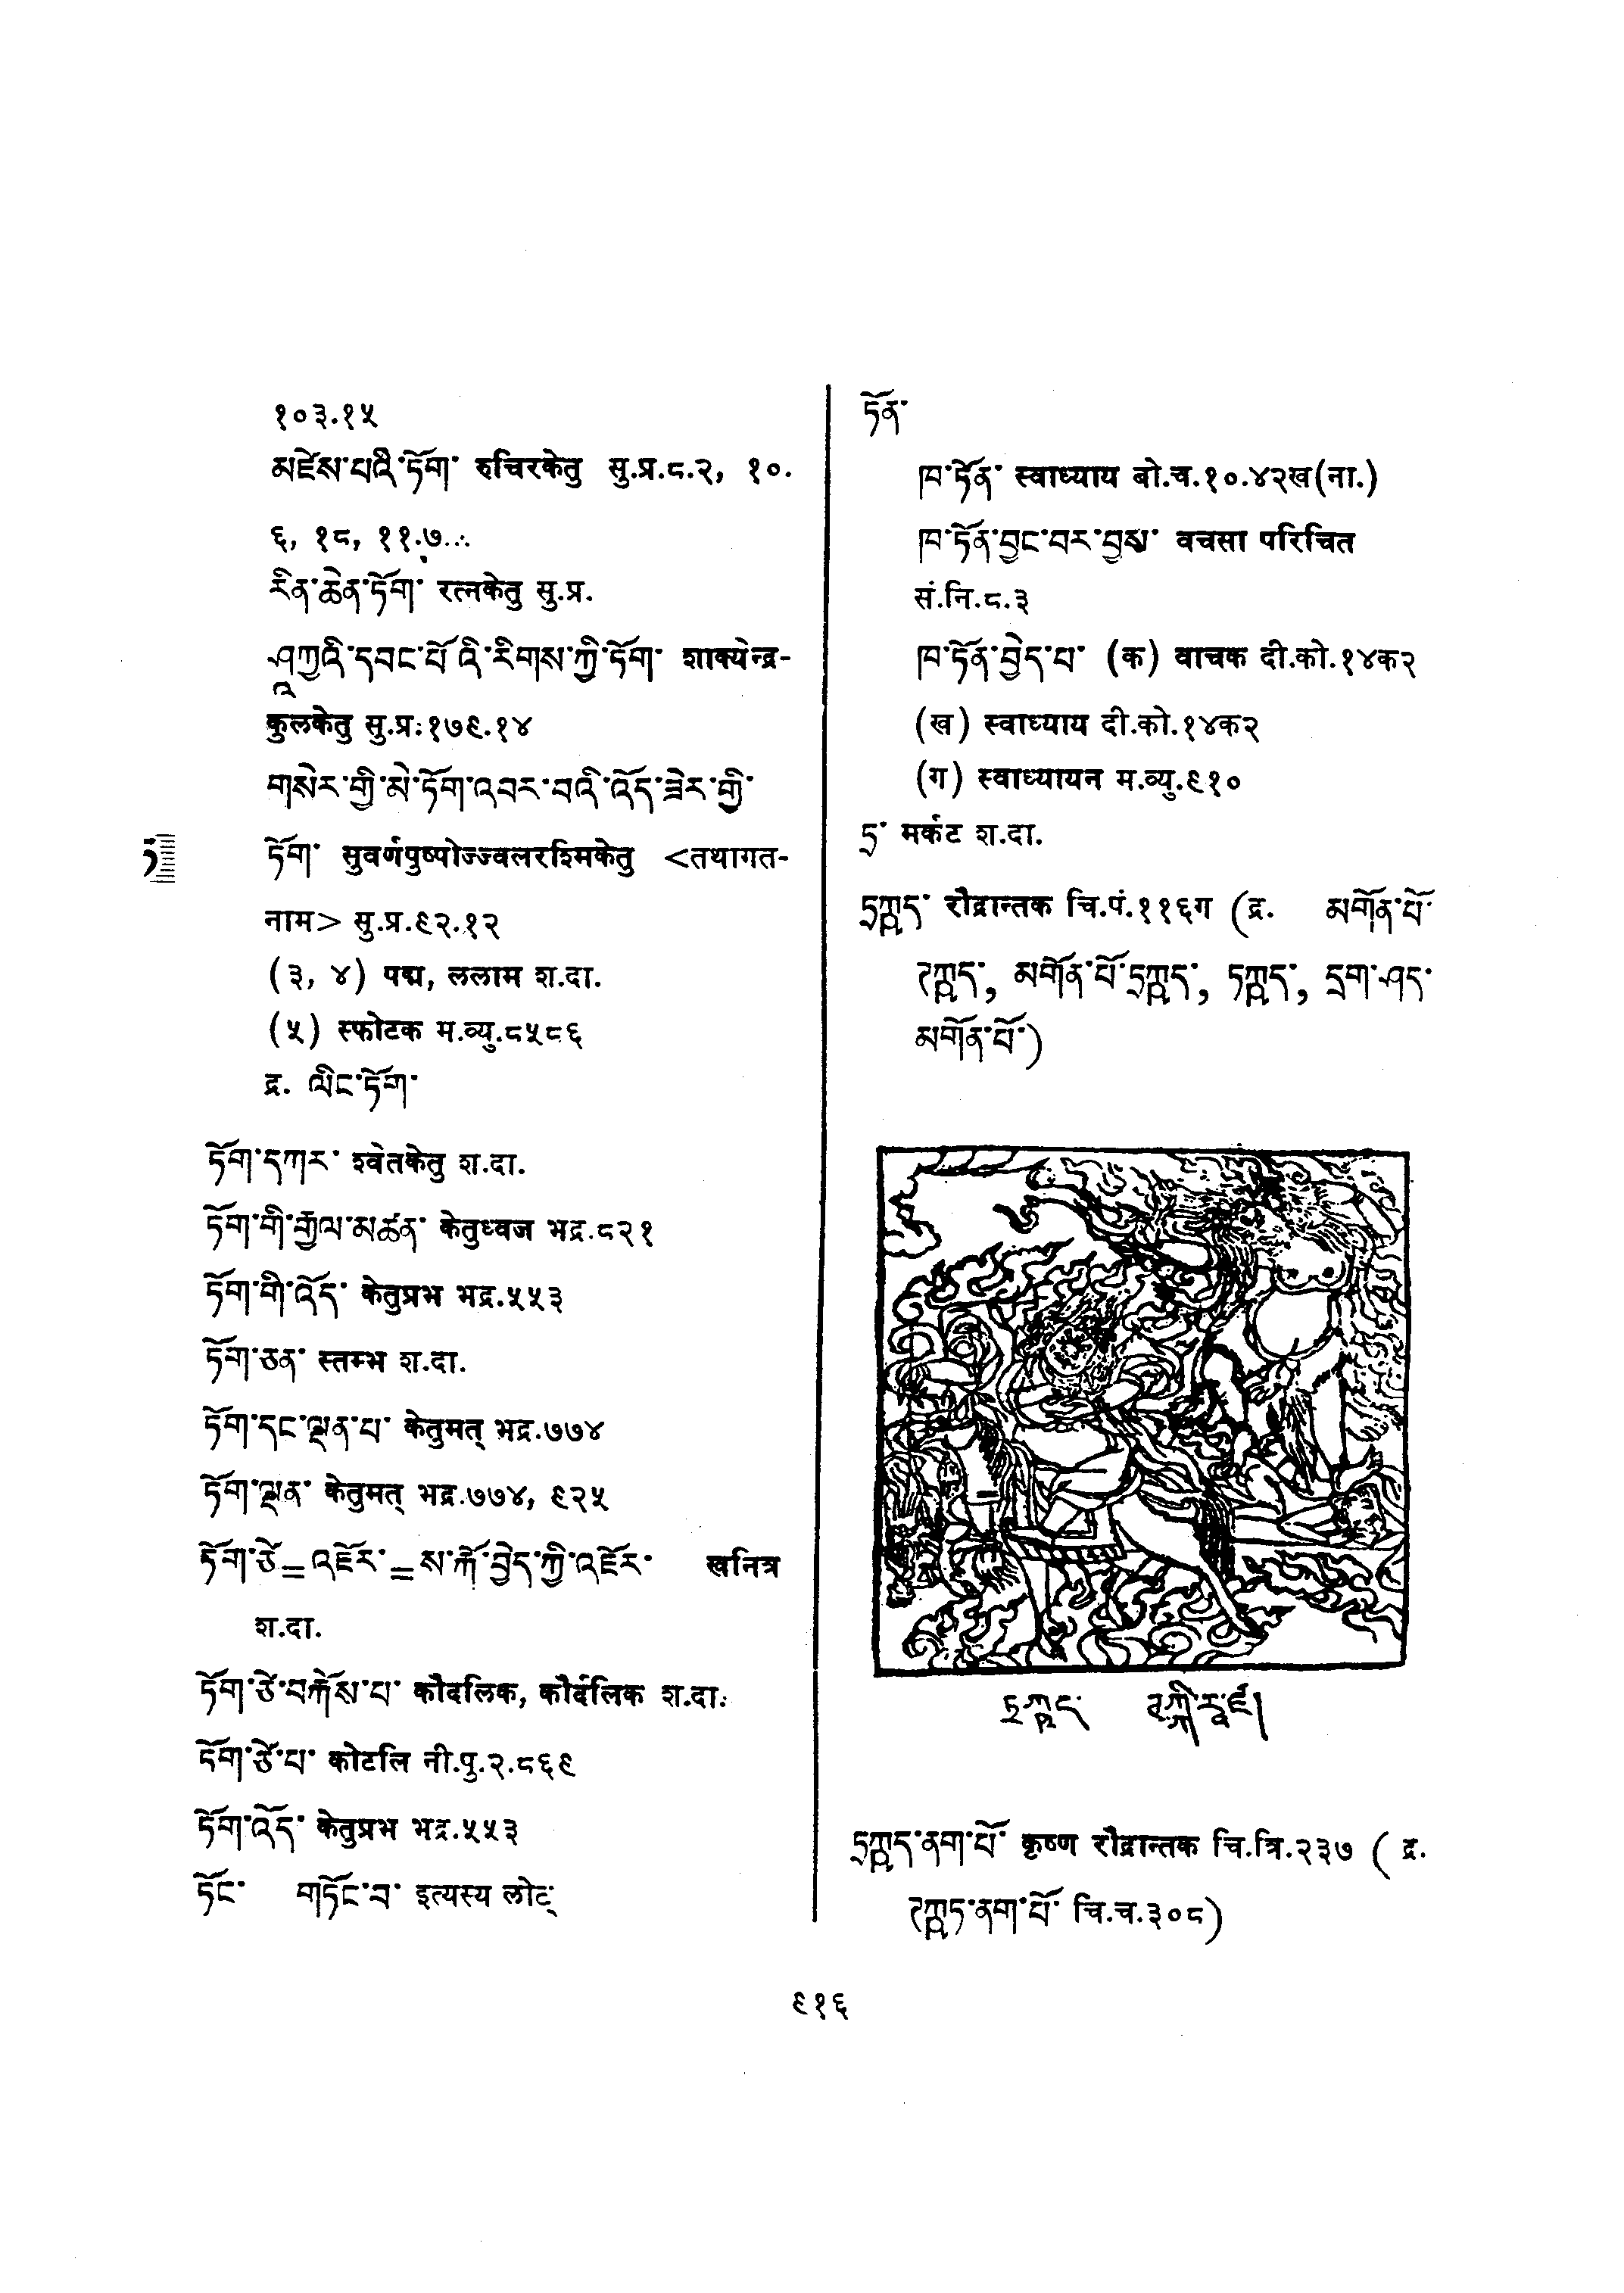 १०३.१५
མཛེས་པའི་ཏོག་ रुचिरकेतु सु.प्र.८.२, १०.
६, १८, ११.७...
རིན་ཆེན་ཏོག་ रत्नकेतु सु.प्र.
ཤཱཀྱའི་དབང་པོ་འི་རིགས་ཀྱི་ཏོག་ शाक्येन्द्र-
कुलकेतु सु.प्र.१७९.१४
གསེར་གྱི་མེ་ཏོག་འབར་བའི་འོད་ཟེར་གྱི་
ཏོག་ सुवर्णपुष्पोज्ज्वलरश्मिकेतु <तथागत-
नाम> सु.प्र.९२.१२
(३, ४) पद्म, ललाम श.दा.
(५) स्फोटक म.व्यु.८५८६
द्र. ལིང་ཏོག་
ཏོག་དཀར་ श्वेतकेतु श.दा.
ཏོག་གི་རྒྱལ་མཚན་ केतुध्वज भद्र.८२१
ཏོག་གི་འོད་ केतुप्रभ भद्र.५५३
ཏོག་ཅན་ स्तम्भ श.दा.
ཏོག་དང་ལྡན་པ་ केतुमत् भद्र.७७४
ཏོག་ལྡན་ केतुमत् भद्र.७७४, ९२५
ཏོག་ཙེ=འཇོར་=ས་རྐོ་བྱེད་ཀྱི་འཇོར་ खनित्र
श.दा.
ཏོག་ཙེ་བརྐོས་པ་ कौदलिक, कौर्दलिक श.दा.
ཏོག་ཙེ་པ་ कोटलि नी.पु.२.८६९
ཏོག་འོད་ केतुप्रभ भद्र.५५३
ཏོང་ གཏོང་བ་ इत्यस्य लोट्
ཏོན་
ཁ་ཏོན་ स्वाध्याय बो.च.१०.४२ख(ना.)
ཁ་ཏོན་བྱང་བར་བྱས་ वचसा परिचित
सं.नि.८.३
ཁ་ཏོན་བྱེད་པ་ (क) वाचक दी.को.१४क२
(ख) स्वाध्याय दी.को.१४क२
(ग) स्वाध्यायन म.व्यु.९१०
ཏྲ་ मर्कट श.दा.
ཏྲཀྵད་ रौद्रान्तक चि.पं.११६ग (द्र. མགོན་པོ་
ཊཀྵད་, མགོན་པོ་ཏྲཀྵད་, ཏཀྵད་, དྲག་ཤད་
མགོན་པོ་)
ཏྲཀྵད་ནག་པོ་ कृष्ण रौद्रान्तक चि.त्रि.२३७ ( द्र.
ཊཀྵད་ནག་པོ་ चि.च.३०८)
९१६